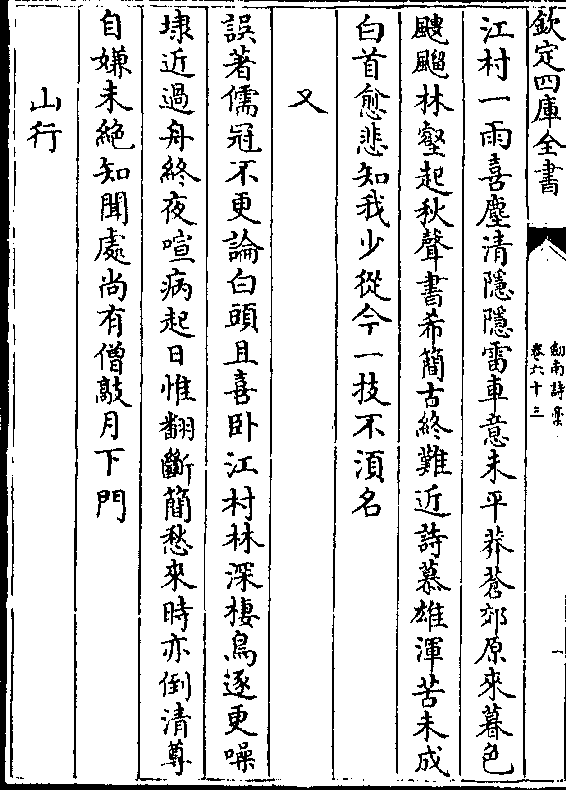 欽定四庫全書
劒南詩稾
卷六十三
一
江村一雨喜塵清隱隱雷車意未平莽蒼郊原來暮色
颼飀林壑起秋聲書希簡古終難近詩慕雄渾苦未成
白首愈悲知我少從今一技不湏名
又
誤著儒冠不更論白頭且喜卧江村林深棲鳥逐更噪
埭近過舟終夜喧病起日惟翻斷簡愁來時亦倒清尊
自嫌未絶知聞處尚有僧敲月下門
山行